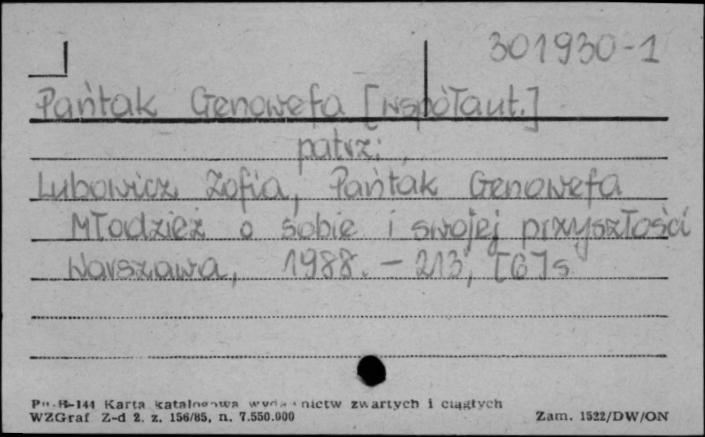 301930-1
Pańtak Genowefa [współaut.]
patrz:
Lubowicz Zofia, Pańtak Genowefa
Młodzież o sobie i swojej przyszłości
Warszawa, 1988. - 213, [6] s
Pu-B-144 Karta katalogowa wydawnictw zwartych i ciągłych
WZGraf Z-d 2. z. 156/85, n. 7.550.000 Zam. 1522/DW/ON